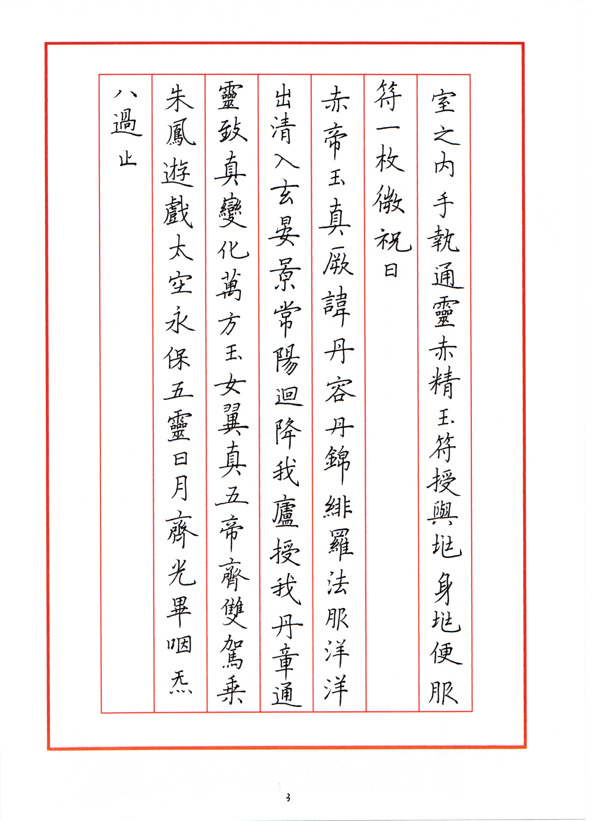 室之內手執通靈赤精玉符授與兆身兆便服
符一枚微祝曰
赤帝玉真厥諱丹容丹錦緋羅法服洋洋
出清入玄晏景常陽迴降我廬授我丹章通
靈致真變化萬方玉女翼真五帝齊雙駕乘
朱鳳遊戲太空永保五靈日月齊光畢咽炁
八過止
3